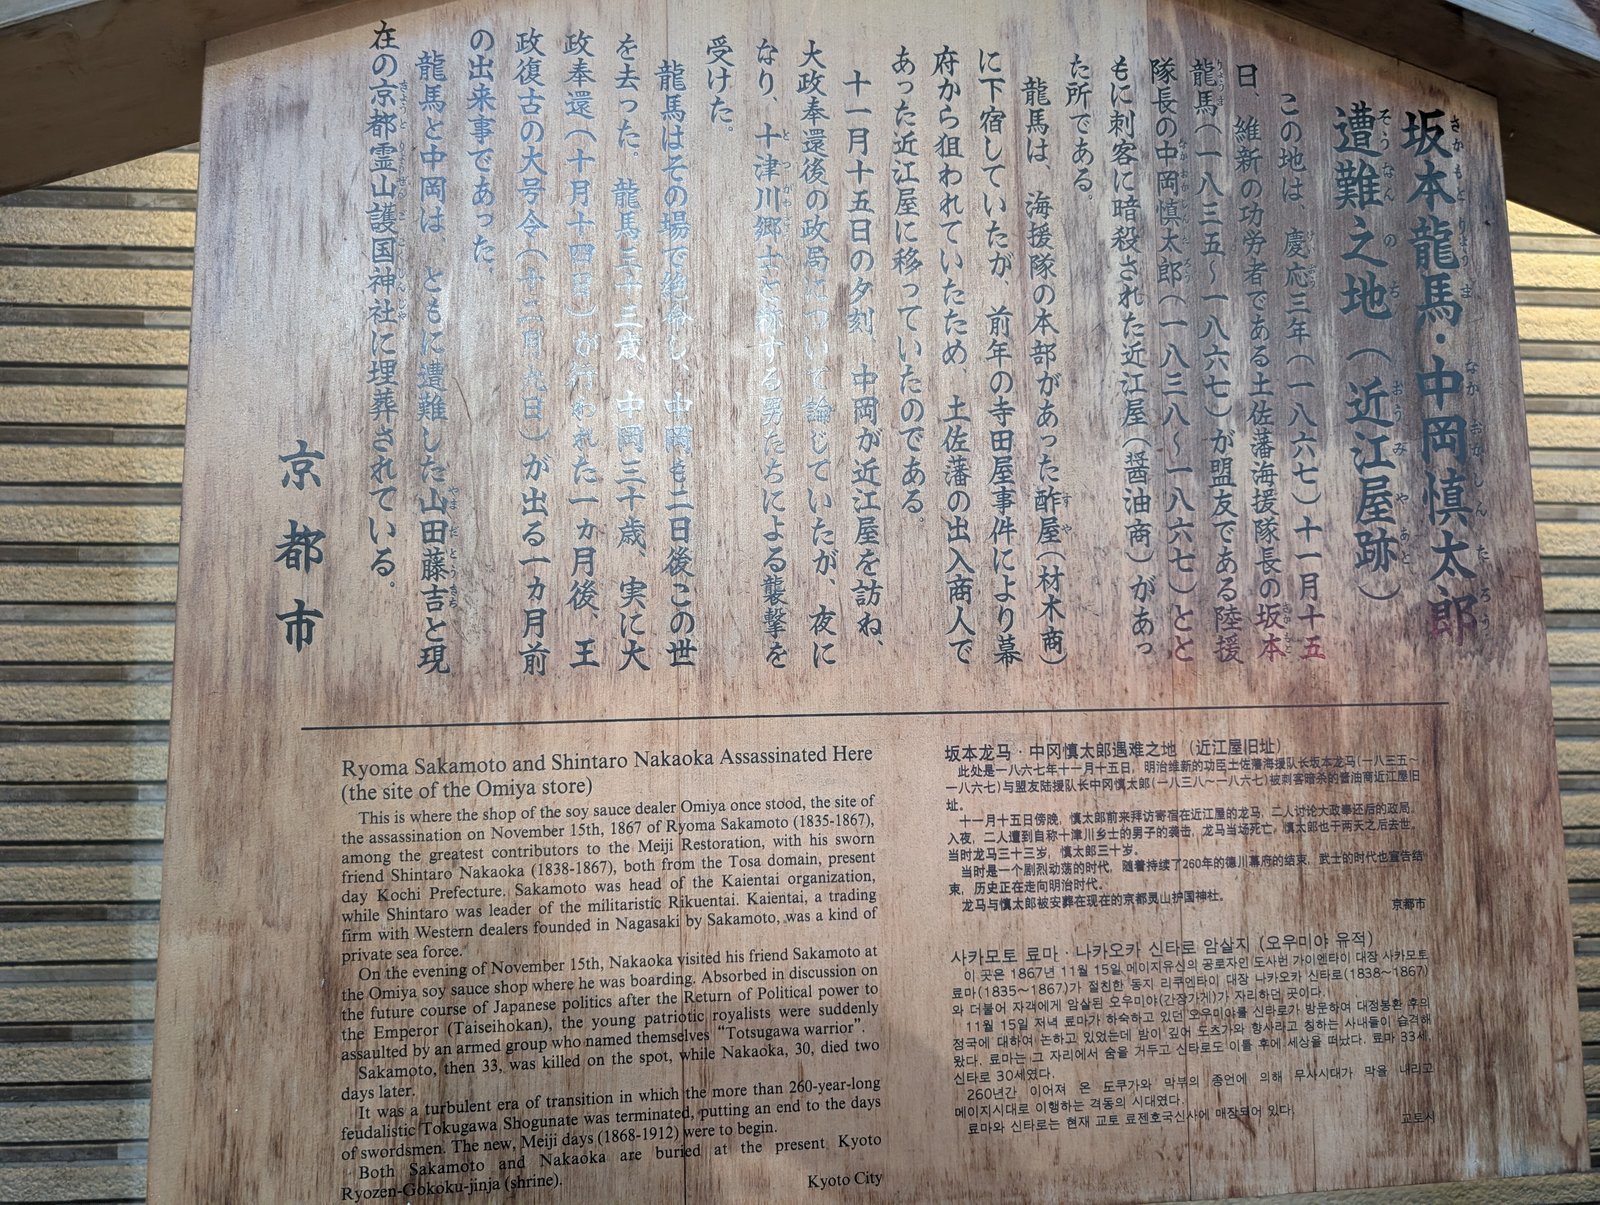 坂本龍馬・中岡慎太郎
遭難之地（近江屋跡）
この地は、慶応三年（一八六七）十一月十五
日、維新の功労者である土佐藩海援隊長の坂本
龍馬（一八三五～一八六七）が盟友である陸援
隊長の中岡慎太郎（一八三八～一八六七）とと
もに刺客に暗殺された近江屋（醤油商）があっ
た所である。
龍馬は、海援隊の本部があった酢屋（材木商）
に下宿していたが、前年の寺田屋事件により幕
府から狙われていたため、土佐藩の出入商人で
あった近江屋に移っていたのである。
十一月十五日の夕刻、中岡が近江屋を訪ね、
大政奉還後の政局について論じていたが、夜に
なり、十津川郷士と称する男たちによる襲撃を
受けた。
龍馬はその場で絶命し、中岡も二日後この世
を去った。龍馬三十三歳、中岡三十歳、実に大
政奉還（十月十四日）が行われた一カ月後、王
政復古の大号令（十二月九日）が出る一カ月前
の出来事であった。
龍馬と中岡は、ともに遭難した山田藤吉と現
在の京都霊山護国神社に埋葬されている。
京都市
Ryoma Sakamoto and Shintaro Nakaoka Assassinated Here
(the site of the Omiya store)
This is where the shop of the soy sauce dealer Omiya once stood, the site of
the assassination on November 15th, 1867 of Ryoma Sakamoto (1835-1867),
among the greatest contributors to the Meiji Restoration, with his sworn
friend Shintaro Nakaoka (1838-1867), both from the Tosa domain, present
day Kochi Prefecture. Sakamoto was head of the Kaientai organization,
while Shintaro was leader of the militaristic Rikuentai. Kaientai, a trading
firm with Western dealers founded in Nagasaki by Sakamoto, was a kind of
private sea force.
On the evening of November 15th, Nakaoka visited his friend Sakamoto at
the Omiya soy sauce shop where he was boarding. Absorbed in discussion on
the future course of Japanese politics after the Return of Political power to
the Emperor (Taiseihokan), the young patriotic royalists were suddenly
assaulted by an armed group who named themselves “Totsugawa warrior”.
Sakamoto, then 33, was killed on the spot, while Nakaoka, 30, died two
days later.
It was a turbulent era of transition in which the more than 260-year-long
feudalistic Tokugawa Shogunate was terminated, putting an end to the days
of swordsmen. The new, Meiji days (1868-1912) were to begin.
Both Sakamoto and Nakaoka are buried at the present Kyoto
Ryozen-Gokoku-jinja (shrine).
Kyoto City
坂本龙马・中冈慎太郎遇难之地（近江屋旧址）
此处是一八六七年十一月十五日，明治维新的功臣土佐藩海援队长坂本龙马（一八三五～
一八六七）与盟友陆援队长中冈慎太郎（一八三八～一八六七）被刺客暗杀的酱油商近江屋旧
址。
十一月十五日傍晚，慎太郎前来拜访寄宿在近江屋的龙马，二人讨论大政奉还后的政局。
入夜，二人遭到自称十津川乡士的男子的袭击，龙马当场死亡，慎太郎也于两天之后去世。
当时龙马三十三岁，慎太郎三十岁。
当时是一个剧烈动荡的时代，随着持续了260年的德川幕府的结束，武士的时代也宣告结
束，历史正在走向明治时代。
龙马与慎太郎被安葬在现在的京都灵山护国神社。
京都市
사카모토 료마・나카오카 신타로 암살지 (오우미야 유적)
이 곳은 1867년 11월 15일 메이지유신의 공로자인 도사번 가이엔타이 대장 사카모토
료마(1835～1867)가 절친한 동지 리쿠엔타이 대장 나카오카 신타로(1838～1867)
와 더불어 자객에게 암살된 오우미야(간장가게)가 자리하던 곳이다.
11월 15일 저녁 료마가 하숙하고 있던 오우미야를 신타로가 방문하여 대정봉환 후의
정국에 대하여 논하고 있었는데 밤이 깊어 도츠가와 향사라고 칭하는 사내들이 습격해
왔다. 료마는 그 자리에서 숨을 거두고 신타로도 이틀 후에 세상을 떠났다. 료마 33세,
신타로 30세였다.
260년간 이어져 온 도쿠가와 막부의 종언에 의해 무사시대가 막을 내리고
메이지시대로 이행하는 격동의 시대였다.
료마와 신타로는 현재 교토 료젠호국신사에 매장되어 있다.
교토시